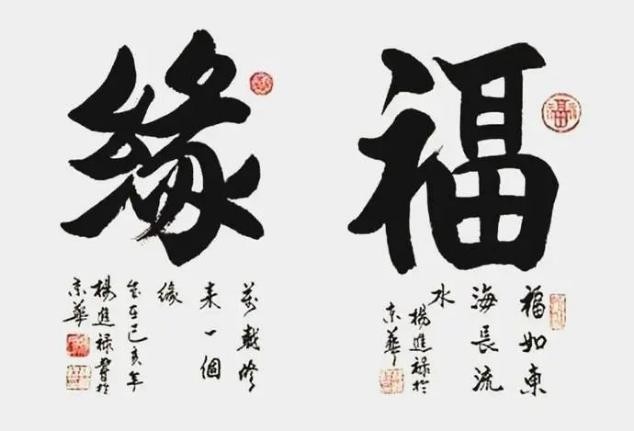 福
福如東
海長流
水
楊進禄於
京華
緣
萬載修
來一個
緣
歲在己亥年
楊進禄書於
京華